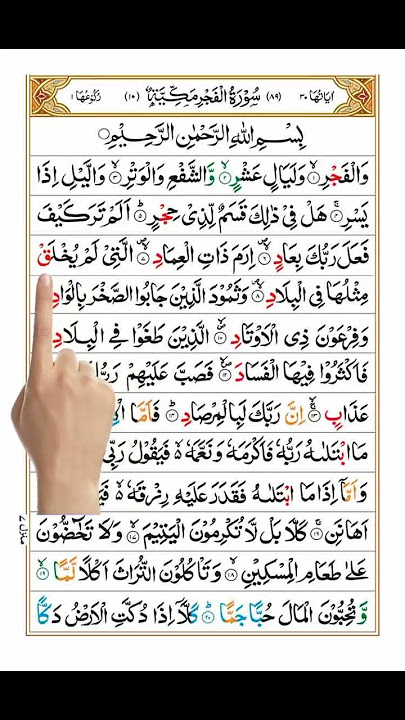 اٰيَاتُهَا ٣٠ (٨٩) سُوْرَةُ الْفَجْرِ مَكِّيَّةٌ (١٠) رُكُوْعُهَا ١
بِسْمِ اللّٰهِ الرَّحْمٰنِ الرَّحِيْمِ
وَالْفَجْرِ ۙ١ وَلَيَالٍ عَشْرٍ ۙ٢ وَّالشَّفْعِ وَالْوَتْرِ ۙ٣ وَالَّيْلِ اِذَا
يَسْرِ ۚ٤ هَلْ فِيْ ذٰلِكَ قَسَمٌ لِّذِيْ حِجْرٍ ؕ٥ اَلَمْ تَرَ كَيْفَ
فَعَلَ رَبُّكَ بِعَادٍ ۙ٦ اِرَمَ ذَاتِ الْعِمَادِ ۙ٧ الَّتِيْ لَمْ يُخْلَقْ
مِثْلُهَا فِي الْبِلَادِ ۙ٨ وَثَمُوْدَ الَّذِيْنَ جَابُوا الصَّخْرَ بِالْوَادِ
وَفِرْعَوْنَ ذِي الْاَوْتَادِ ۙ١٠ الَّذِيْنَ طَغَوْا فِي الْبِلَادِ
فَاَكْثَرُوْا فِيْهَا الْفَسَادَ ۙ١٢ فَصَبَّ عَلَيْهِمْ
عَذَابٍ ۚ١٣ اِنَّ رَبَّكَ لَبِالْمِرْصَادِ ؕ١٤ فَاَمَّا
مَا ابْتَلٰىهُ رَبُّهٗ فَاَكْرَمَهٗ وَنَعَّمَهٗ ۙ فَيَقُوْلُ رَبِّيْ
وَاَمَّاۤ اِذَا مَا ابْتَلٰىهُ فَقَدَرَ عَلَيْهِ رِزْقَهٗ ۙ
اَهَانَنِ ۚ١٦ كَلَّا بَلْ لَّا تُكْرِمُوْنَ الْيَتِيْمَ ۙ١٧ وَلَا تَحٰٓضُّوْنَ
عَلٰى طَعَامِ الْمِسْكِيْنِ ۙ١٨ وَتَاْكُلُوْنَ التُّرَاثَ اَكْلًا لَّمًّا ۙ١٩
وَّتُحِبُّوْنَ الْمَالَ حُبًّا جَمًّا ؕ٢٠ كَلَّاۤ اِذَا دُكَّتِ الْاَرْضُ دَكًّا